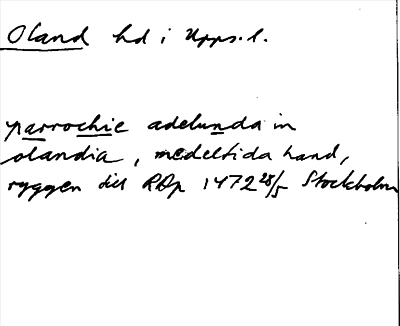 Oland hd i Upps. l.
parrochie adelunda in
olandia, medeltida hand,
ryggen till RAp 1472 28/5 Stockholm